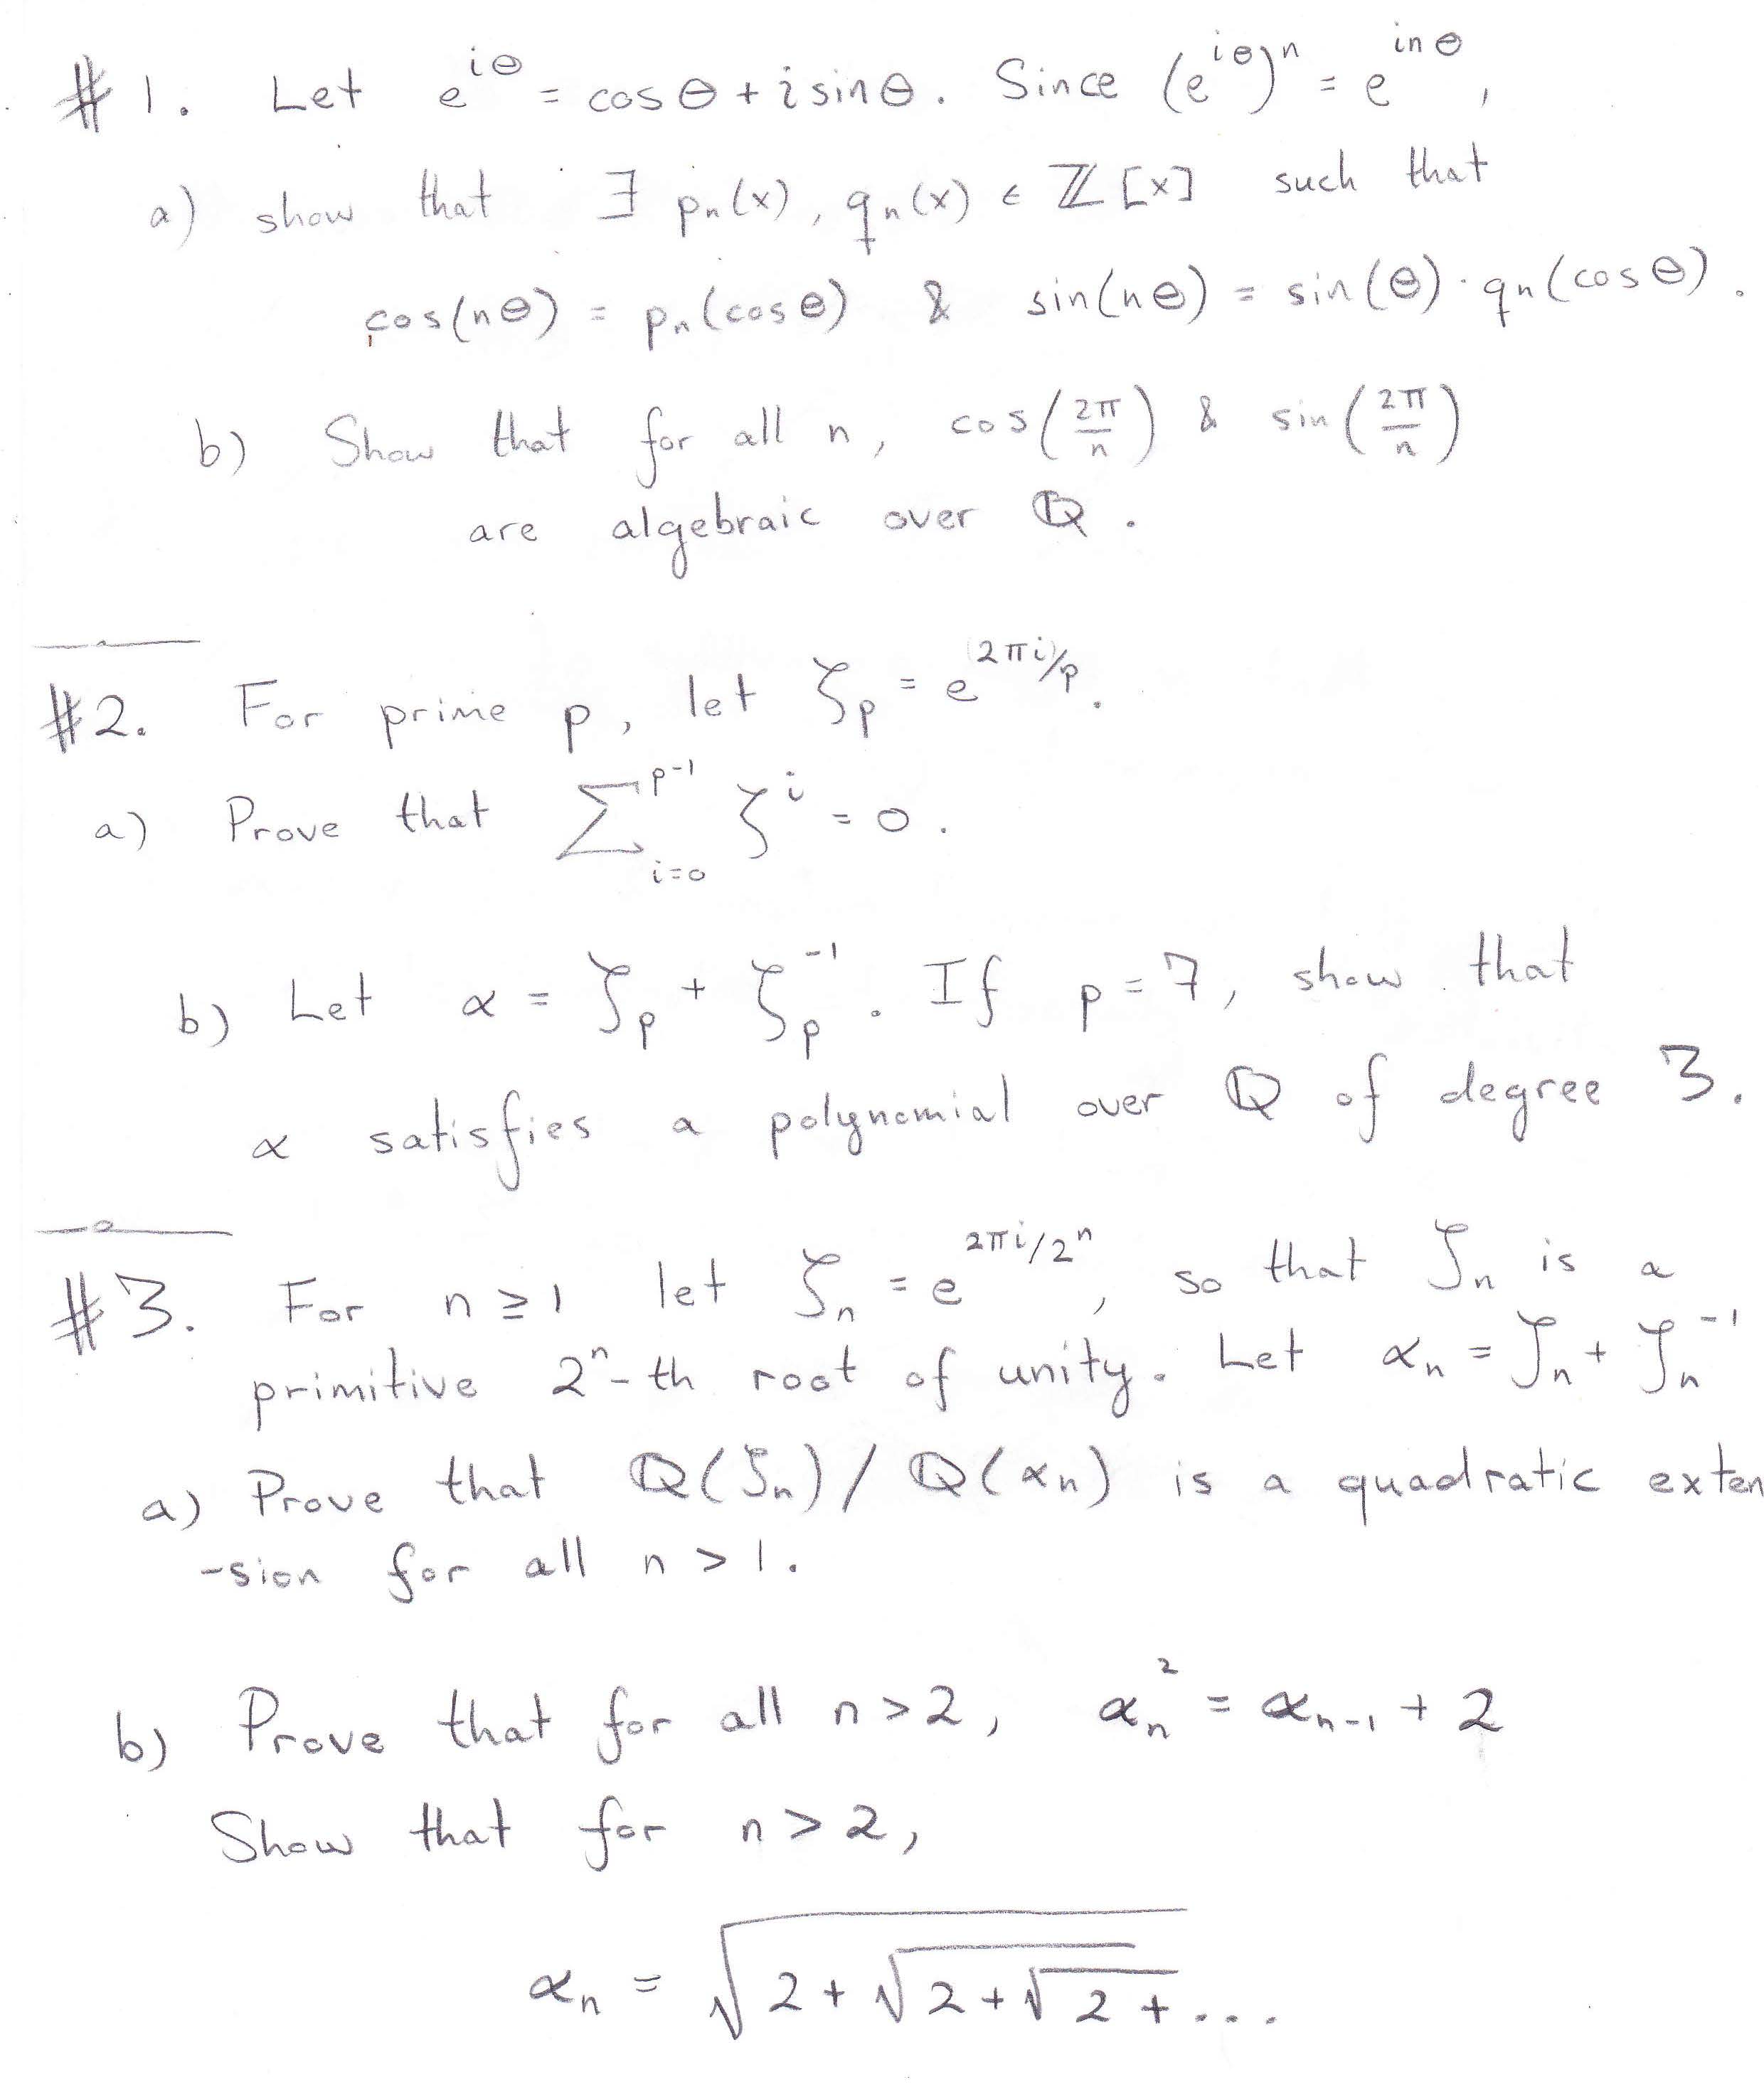 #1. Let e^{iθ} = cosθ + i sinθ. Since (e^{iθ})^n = e^{inθ},
a) show that ∃ p_n(x), q_n(x) ∈ ℤ[x] such that
cos(nθ) = p_n(cosθ) & sin(nθ) = sin(θ)·q_n(cosθ).
b) Show that for all n, cos(2π/n) & sin(2π/n)
are algebraic over ℚ.
#2. For prime p, let ζ_p = e^{2πi/p}.
a) Prove that ∑_{i=0}^{p-1} ζ^i = 0.
b) Let α = ζ_p + ζ_p^{-1}. If p = 7, show that
α satisfies a polynomial over ℚ of degree 3.
#3. For n ≥ 1 let ζ_n = e^{2πi/2^n}, so that ζ_n is a
primitive 2^n-th root of unity. Let α_n = ζ_n + ζ_n^{-1}
a) Prove that ℚ(ζ_n) / ℚ(α_n) is a quadratic exten
-sion for all n > 1.
b) Prove that for all n > 2, α_n^2 = α_{n-1} + 2
Show that for n > 2,
α_n = √(2 + √(2 + √(2 + ...